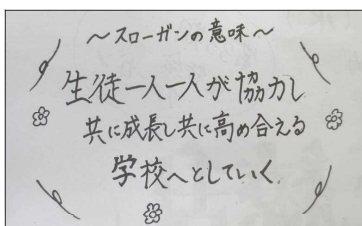 ～スローガンの意味～
生徒一人一人が協力し
共に成長し共に高め合える
学校へとしていく